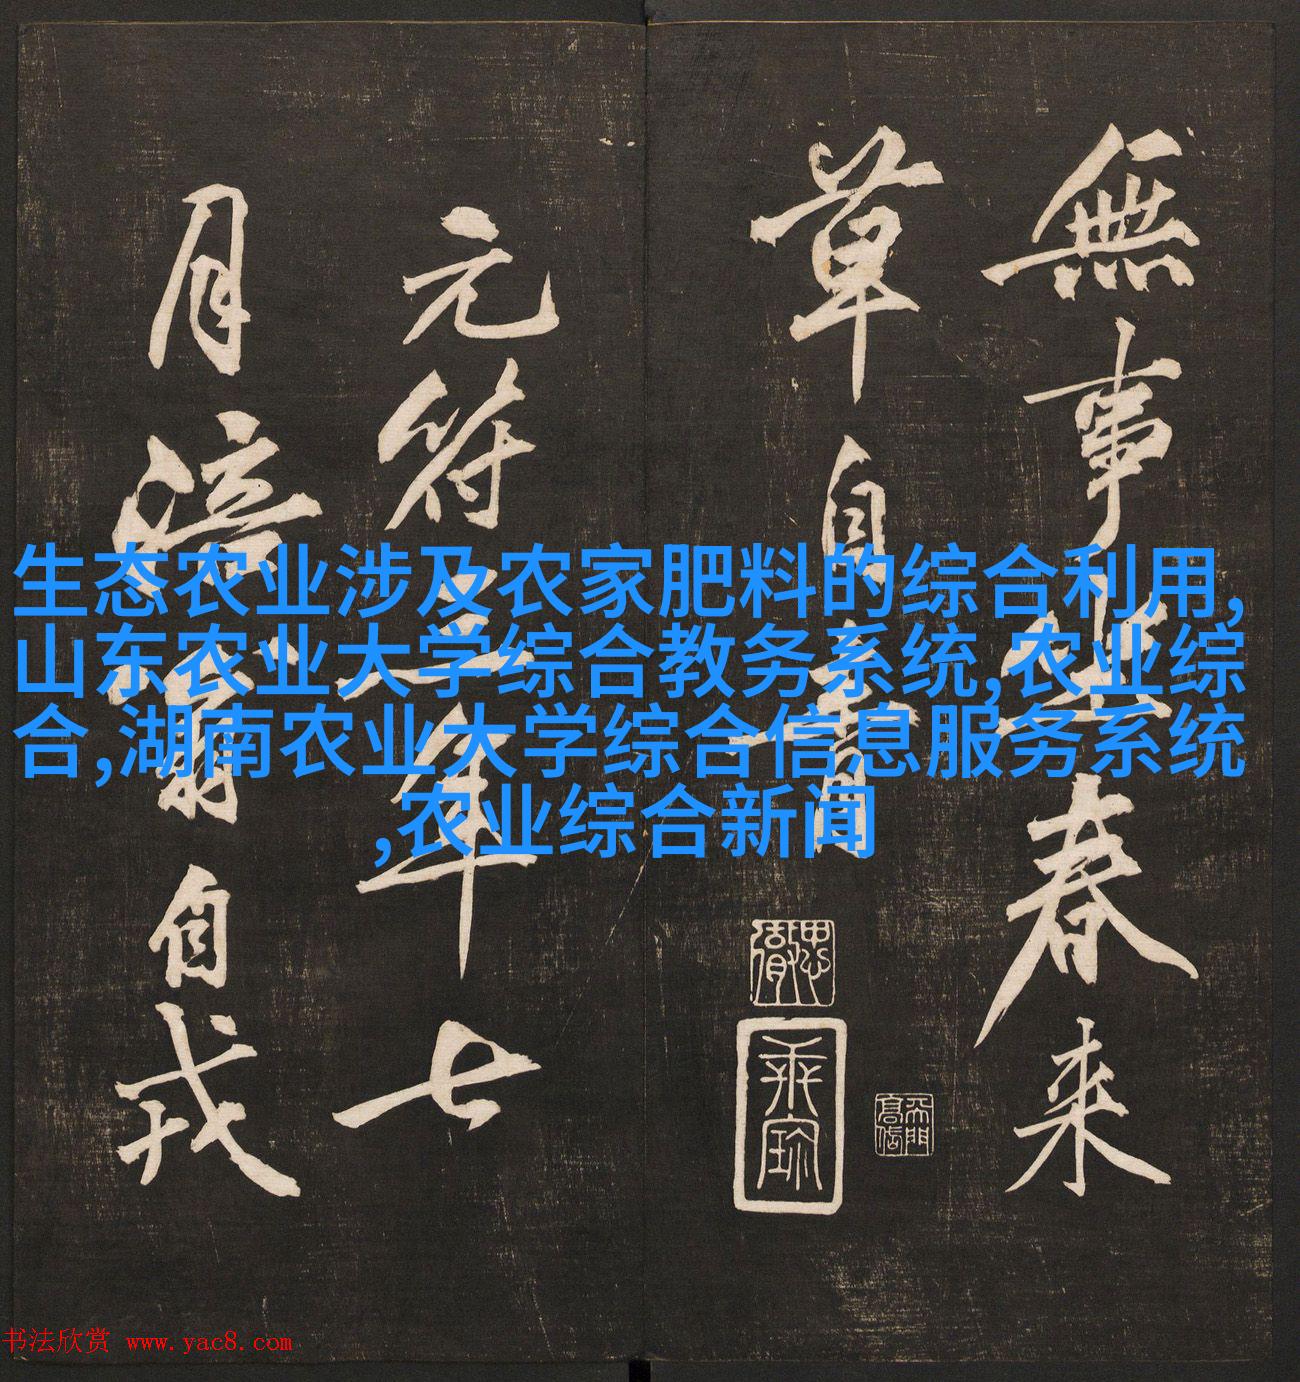 無事坐春来
草自青
元符三年七
月涪翁自戎
生态农业涉及农家肥料的综合利用,
山东农业大学综合教务系统,农业综
合,湖南农业大学综合信息服务系统
,农业综合新闻
书法欣赏 www.yac8.com